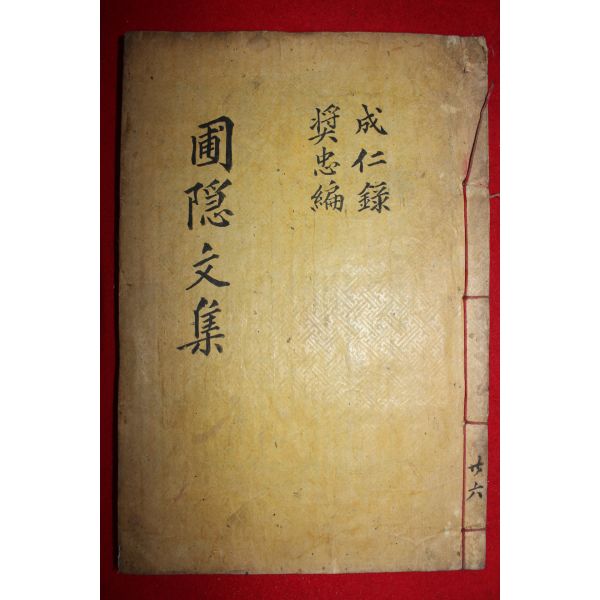 成仁錄
奬忠編
圃隱文集
廿六